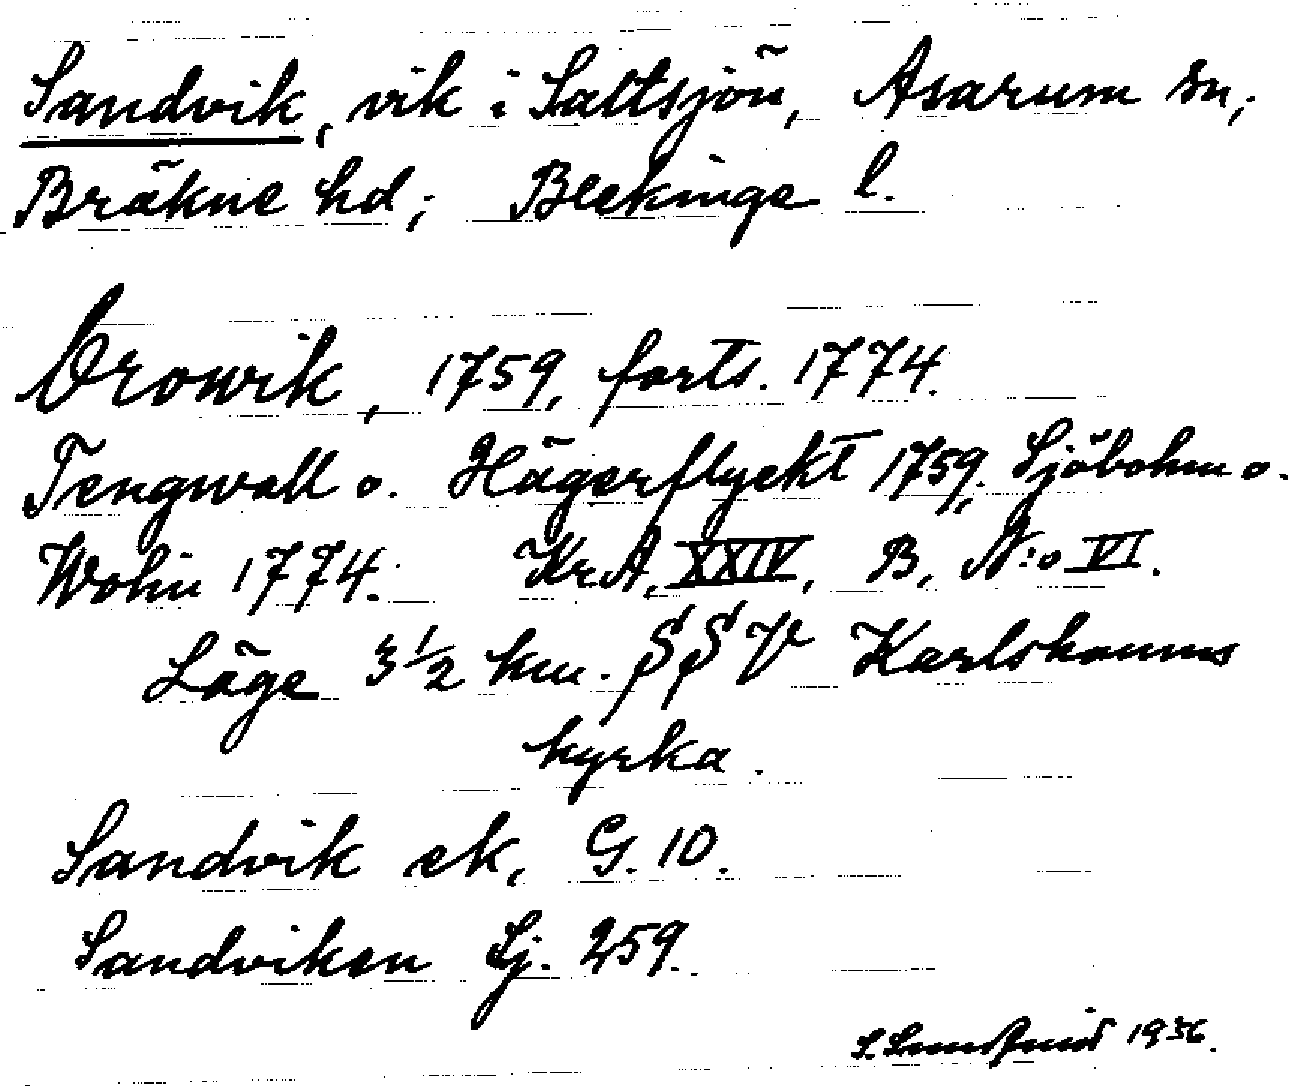 Sandvik, vik i Saltsjön, Asarum sn,
Bräkne hd, Blekinge l.
Orowik, 1759, forts. 1774.
Tengwall o. Hägerflyckt 1759, Sjöbohm o.
Wohin 1774. Kr.A, XXIV, B, N:o VI.
Läge 3 1/2 km. SSV Karlshamns
kyrka.
Sandvik ek, G. 10.
Sandviken Sj. 259.
1936.